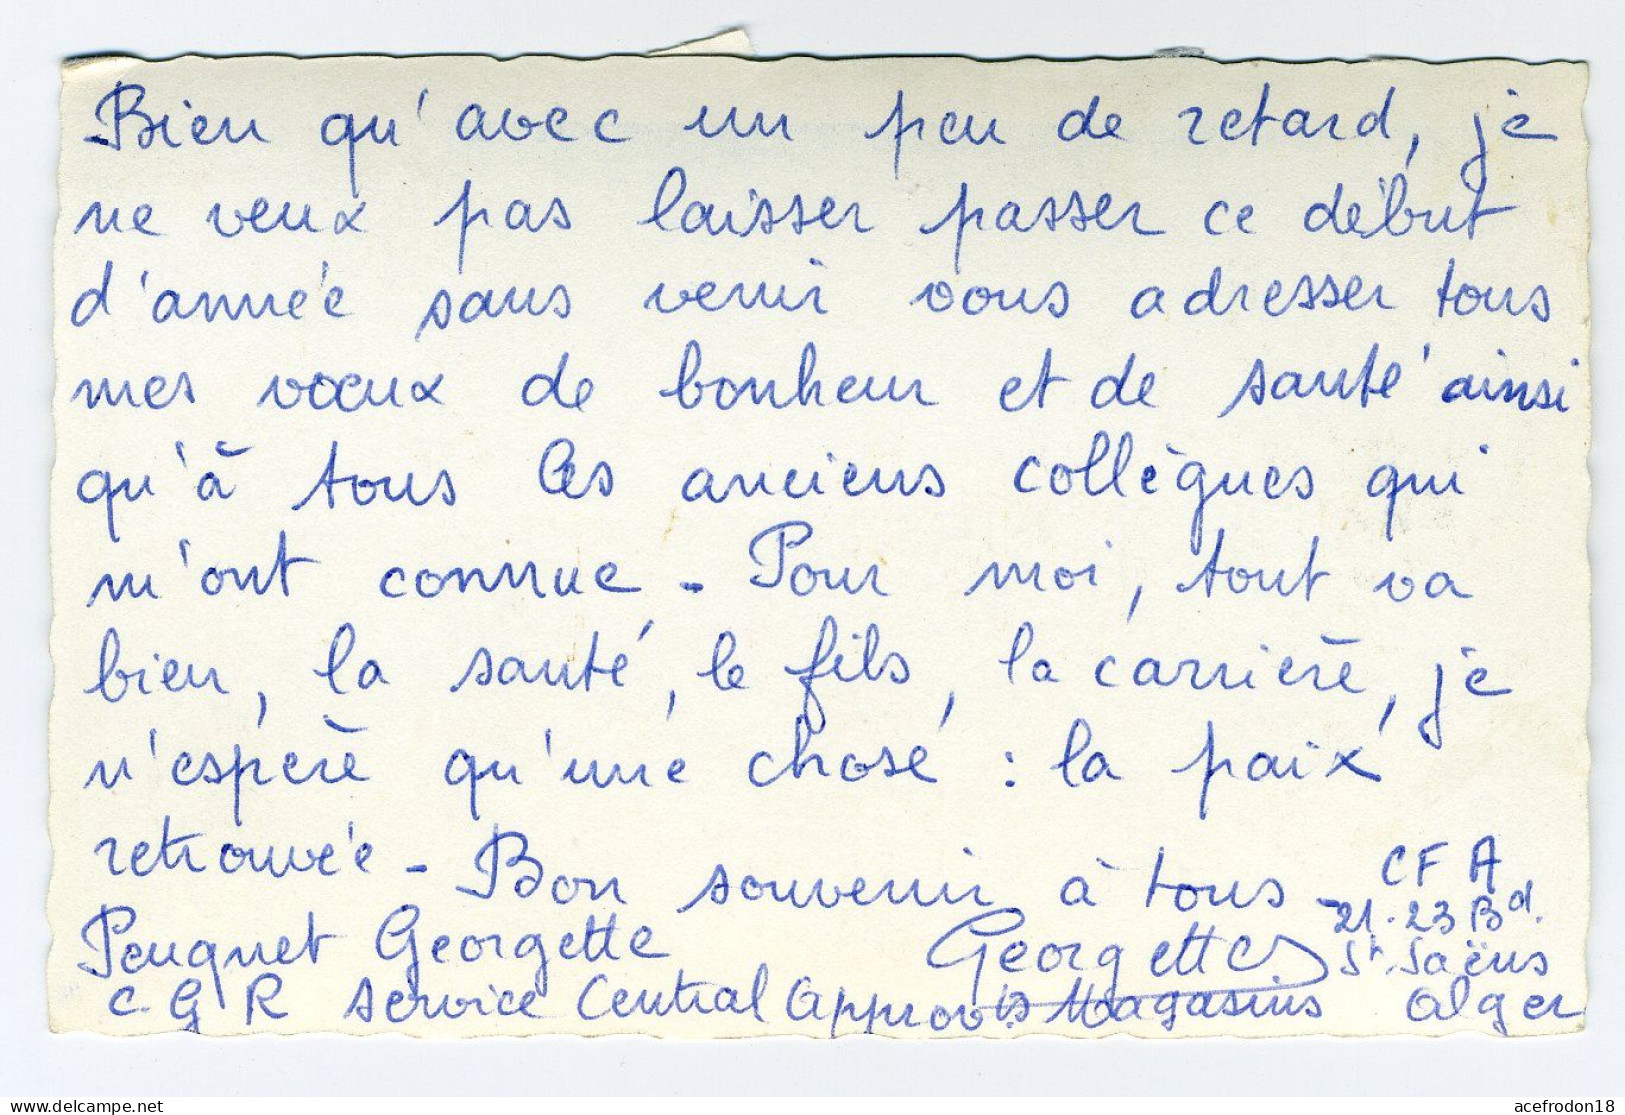 Bien qu'avec un peu de retard, je
ne veux pas laisser passer ce début
d'année sans venir vous adresser tous
mes vœux de bonheur et de santé ainsi
qu'à tous les anciens collègues qui
m'ont connue - Pour moi, tout va
bien, la santé, le fils, la carrière, je
n'espère qu'une chose : la paix
retrouvée - Bon souvenir à tous -
Georgette
Peuquet Georgette
C.G R Service Central Approvts Magasins
CFA
21-23 Bd.
St Saëns
Alger
www.delcampe.net
acefrodon18